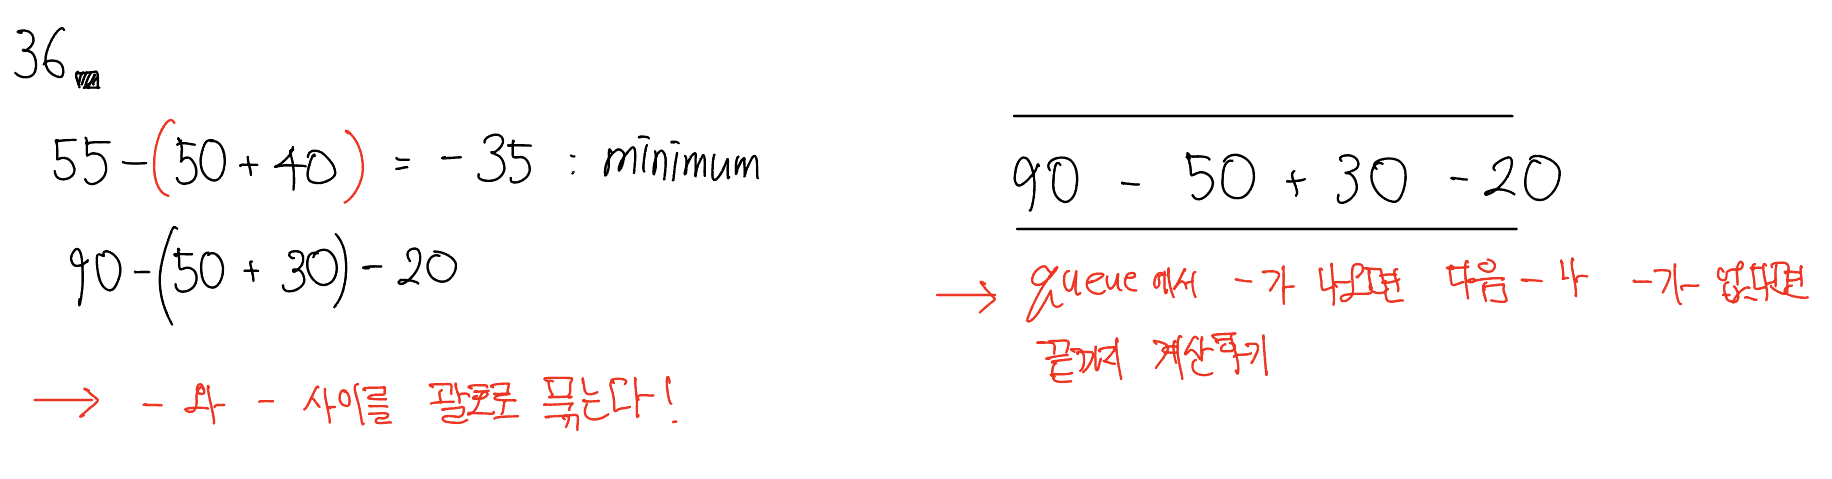 36
55-(50+40) = -35 : minimum
90-(50+30)-20
→ - 와 - 사이를 괄호로 묶는다!
90 - 50 + 30 - 20
→ queue에서 -가 나오면 다음 - 나 -가 없다면
끝까지 계산하기